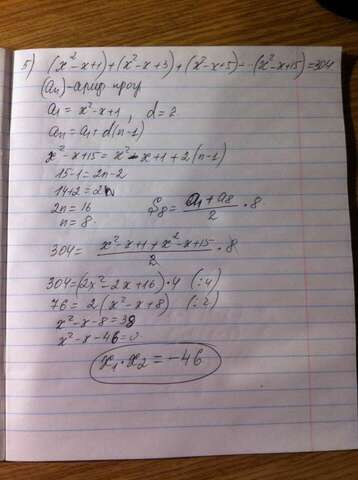 5) (x²-x+1)+(x²-x+3)+(x²-x+5)-..(x²-x+15)=304
(an)-арифм прогр
a1=x²-x+1, d=2
an=a1+d(n-1)
x²-x+15=x²-x+1+2(n-1)
15-1=2n-2
14+2=2n
2n=16
n=8. S8=(a1+a8)/2·8
304=(x²-x+1+x²-x+15)/2·8
304=(2x²-2x+16)·4 (:4)
76=2(x²-x+8) (:2)
x²-x-8=38
x²-x-46=0
x1·x2=-46